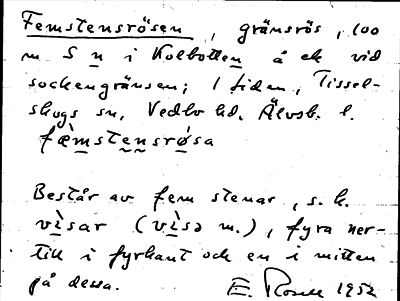 Femstensrösen, gränsrös, 100
m S n i Kolbotten å ek vid
sockengränsen; 1 tiden, Tissel-
skogs sn, Vedbo hd, Älvsb. l.
fæ̀mstensrø̀sa
Består av fem stenar, s.k.
vìsar (vìsə m.), fyra ner-
till i fyrkant och en i mitten
på dessa.
E. 1952